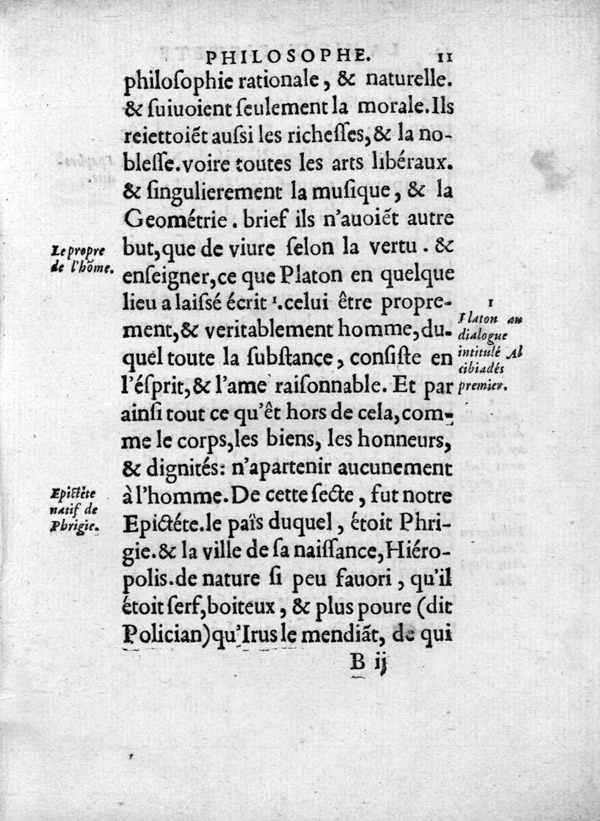 PHILOSOPHE. 11
philoſophie rationale, & naturelle.
& ſuiuoient ſeulement la morale. Ils
reiettoiẽt auſsi les richeſſes, & la no-
bleſſe. voire toutes les arts libéraux.
& ſingulierement la muſique, & la
Geométrie. brief ils n'auoiẽt autre
but, que de viure ſelon la vertu. &
enſeigner, ce que Platon en quelque
lieu a laiſsé écrit 1. celui être propre-
ment, & veritablement homme, du-
quel toute la ſubſtance, conſiſte en
l'éſprit, & l'ame raiſonnable. Et par
ainſi tout ce qu'êt hors de cela, com-
me le corps, les biens, les honneurs,
& dignités: n'apartenir aucunement
à l'homme. De cette ſecte, fut notre
Epictéte. le païs duquel, étoit Phri-
gie. & la ville de ſa naiſſance, Hiéro-
polis. de nature ſi peu fauori, qu'il
étoit ſerf, boiteux, & plus poure (dit
Polician) qu'Irus le mendiãt, de qui
B ij
Le propre
de l'hõme.
Epictéte
natif de
Phrigie.
1
Platon au
dialogue
intitulé Al
cibiadés
premier.